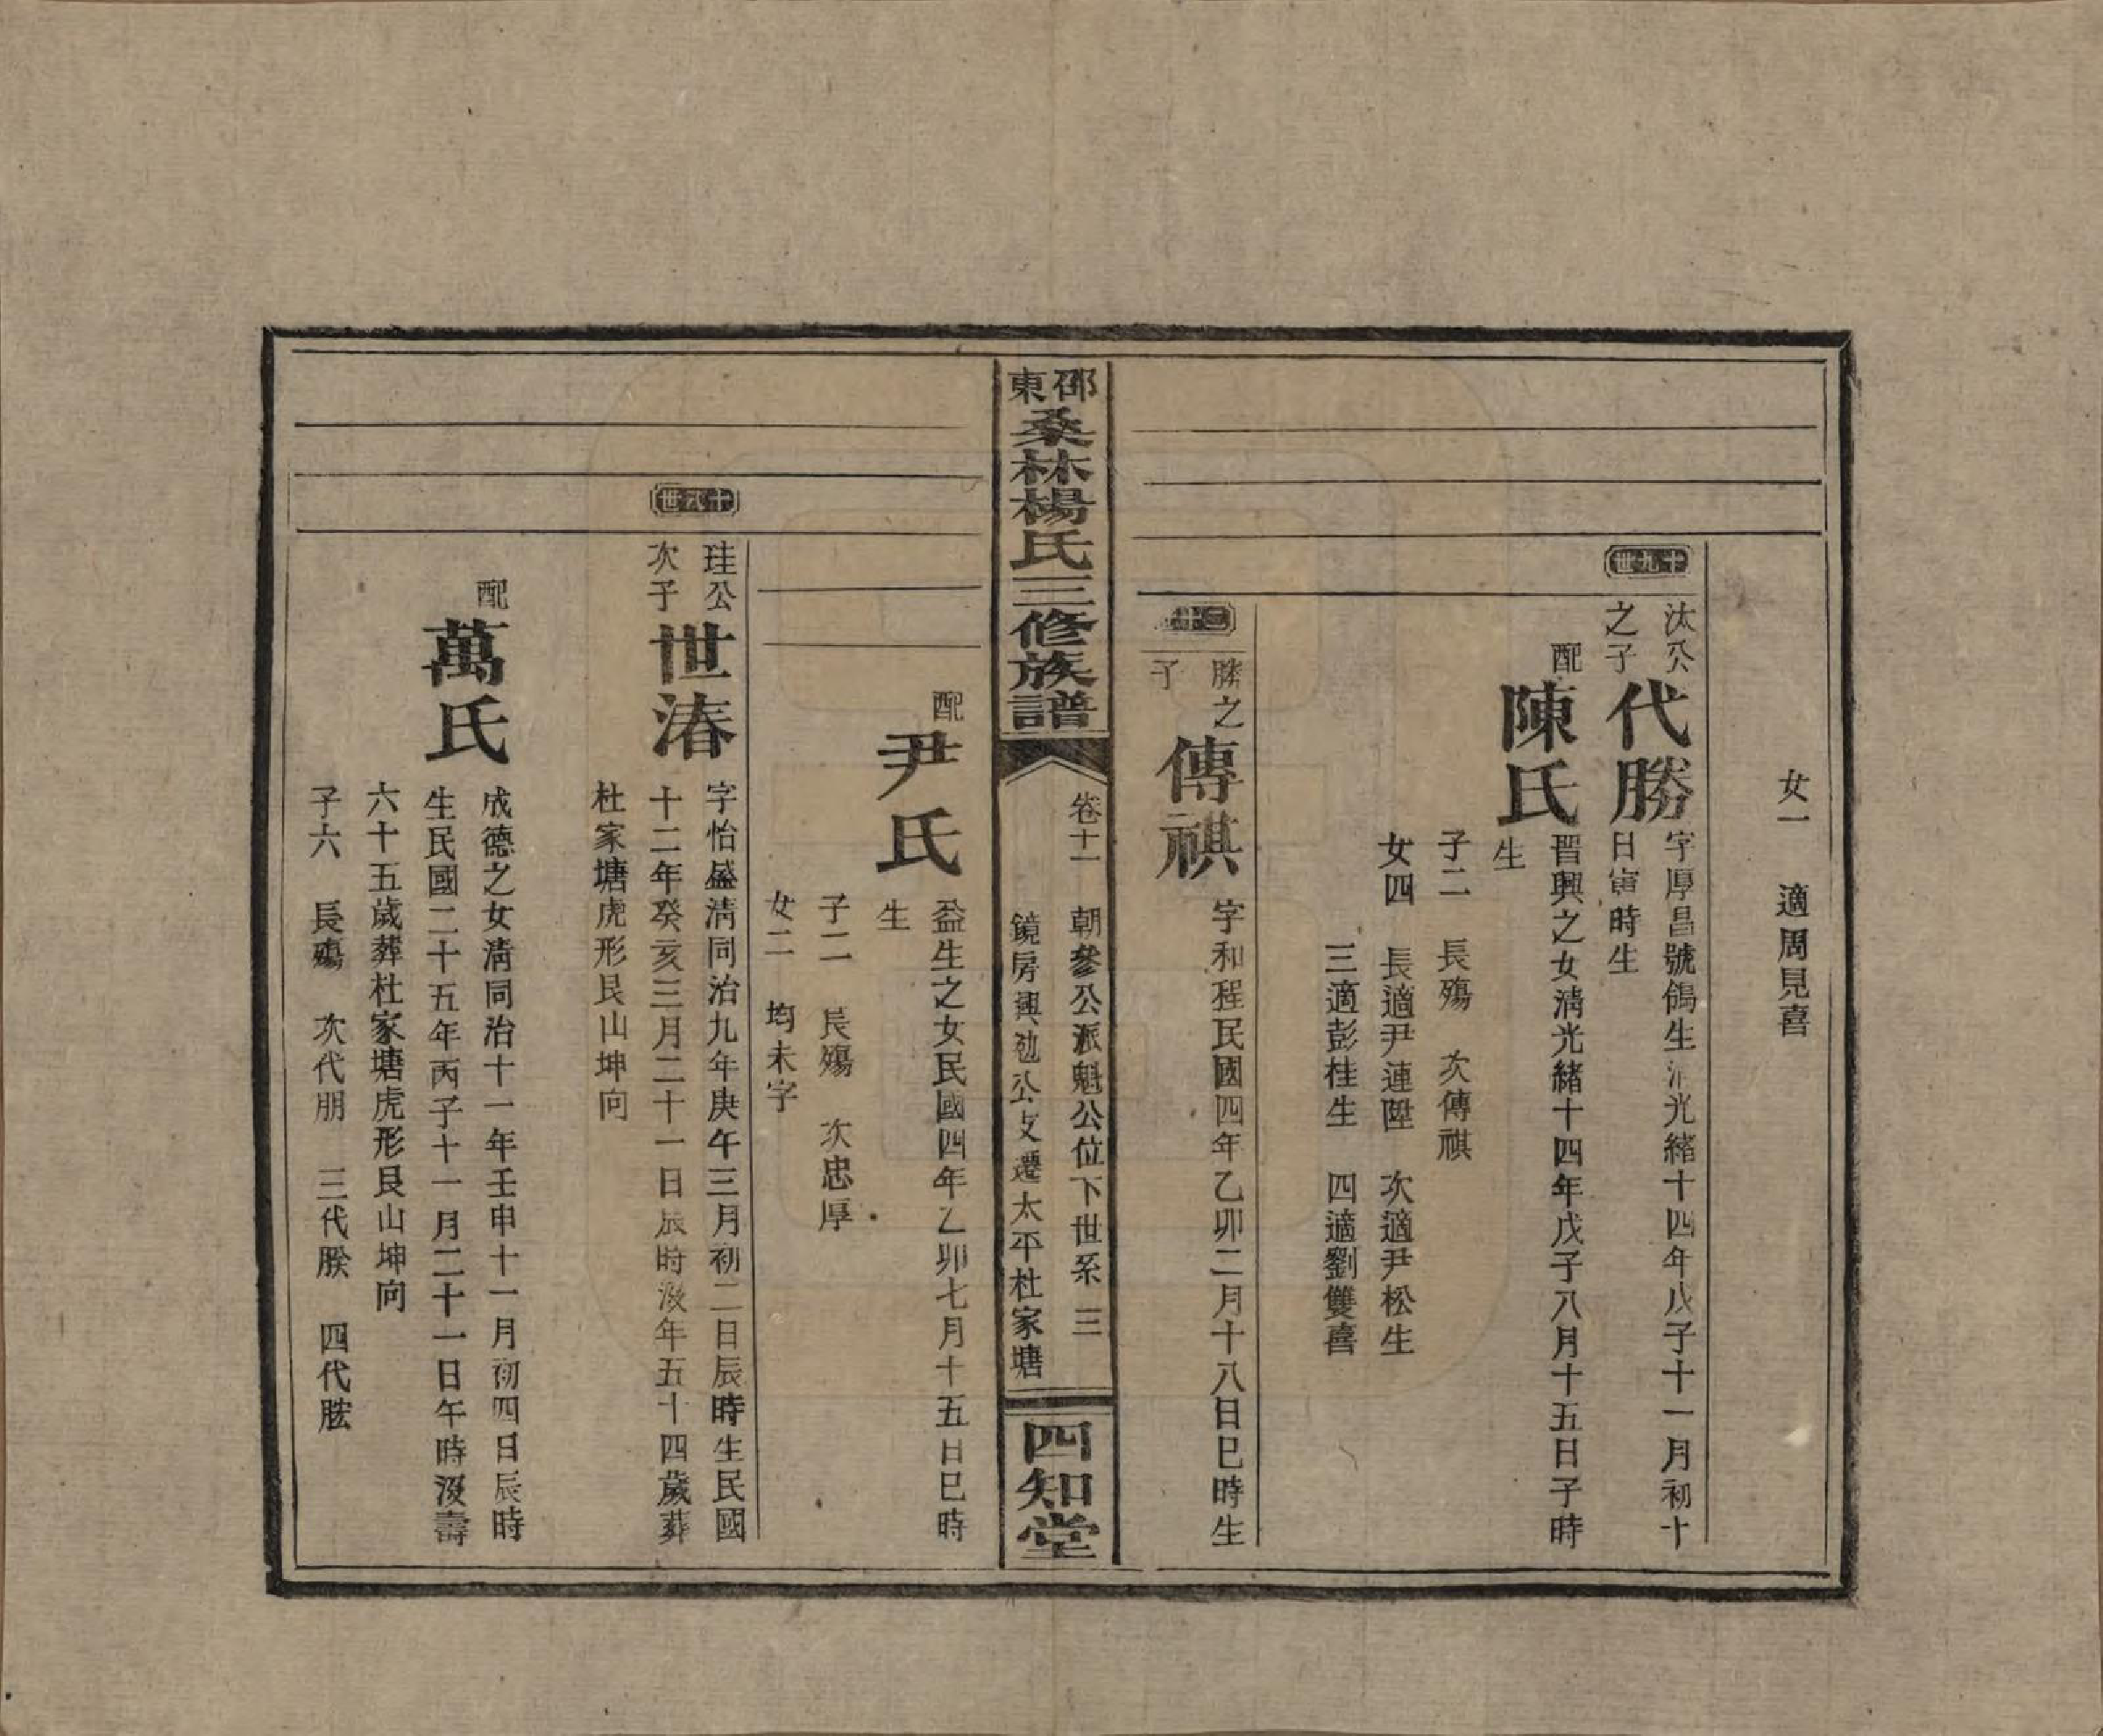 女一　適周見喜
十九世
汰公
之子
代勝
字厚昌號鴿生清光緒十四年戊子十一月初十
日寅時生
配
陳氏
晋興之女清光緒十四年戊子八月十五日子時
生
子二　長殤　次傳祺
女四　長適尹連陞　次適尹松生
三適彭桂生　四適劉雙喜
勝之
子
傳祺
字和程民國四年乙卯二月十八日巳時生
邵東
桑林楊氏三修族譜
卷十一
朝參公派魁公位下世系　三
鏡房興勉公支遷太平杜家塘
四知堂
配
尹氏
益生之女民國四年乙卯七月十五日巳時
生
子二　長殤　次忠厚
女二　均未字
十八世
珪公
次子
世濬
字怡盛清同治九年庚午三月初二日辰時生民國
十二年癸亥三月二十一日辰時沒年五十四歲葬
杜家塘虎形艮山坤向
配
萬氏
成德之女清同治十一年壬申十一月初四日辰時
生民國二十五年丙子十一月二十一日午時沒壽
六十五歲葬杜家塘虎形艮山坤向
子六　長殤　次代朋　三代朕　四代胘